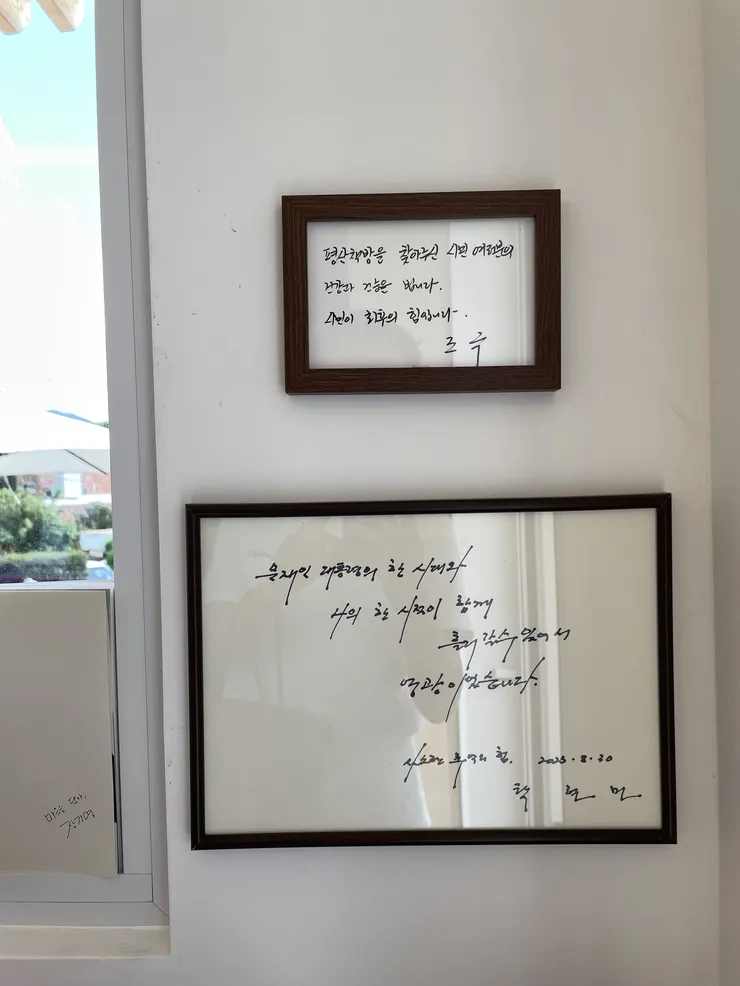 평산책방을 찾아주신 시민 여러분의
건강과 건승을 빕니다.
시민이 최후의 힘입니다.
조 국
문재인 대통령의 한 시대와
나의 한 시절이 함께
흘러갈수 있어서
영광이었습니다.
사소한 추억의 힘. 2023.8.30
탁 현 민
마음 담아.